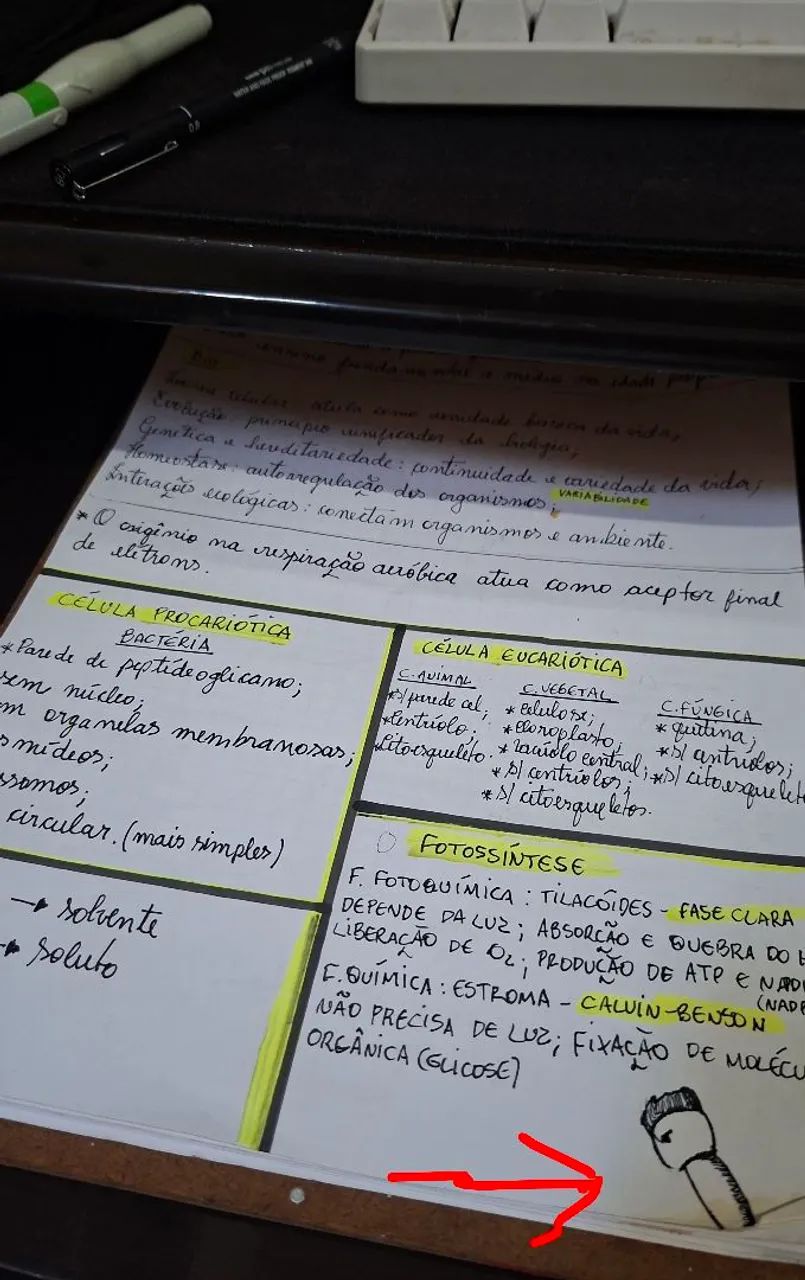 0.8
Bio
Teoria celular: célula como unidade básica da vida;
Evolução: princípio unificador da biologia;
Genética e hereditariedade: continuidade e variedade da vida;
Homeostase: autorregulação dos organismos;
VARIABILIDADE
Interações ecológicas: conectam organismos e ambiente.
* O oxigênio na respiração aeróbica atua como aceptor final
de elétrons.
CÉLULA PROCARIÓTICA
BACTÉRIA
* Parede de peptídeoglicano;
sem núcleo;
organelas membranosas;
circular. (mais simples)
→ solvente
→ soluto
CÉLULA EUCARIÓTICA
C. ANIMAL
* s/ parede cel;
* Centríolo;
Citoesqueleto.
C. VEGETAL
* celulose;
* cloroplasto;
* vacúolo central;
* S/ centríolos;
* S/ citoesqueletos.
C. FÚNGICA
* quitina;
* S/ centríolos;
* S/ citoesquelet
FOTOSSÍNTESE
F. FOTOQUÍMICA: TILACÓIDES - FASE CLARA
DEPENDE DA LUZ; ABSORÇÃO E QUEBRA DO
LIBERAÇÃO DE O2; PRODUÇÃO DE ATP E
F. QUÍMICA: ESTROMA - CALVIN-BENSON
NÃO PRECISA DE LUZ; FIXAÇÃO DE MOLÉCU
ORGÂNICA (GLICOSE)